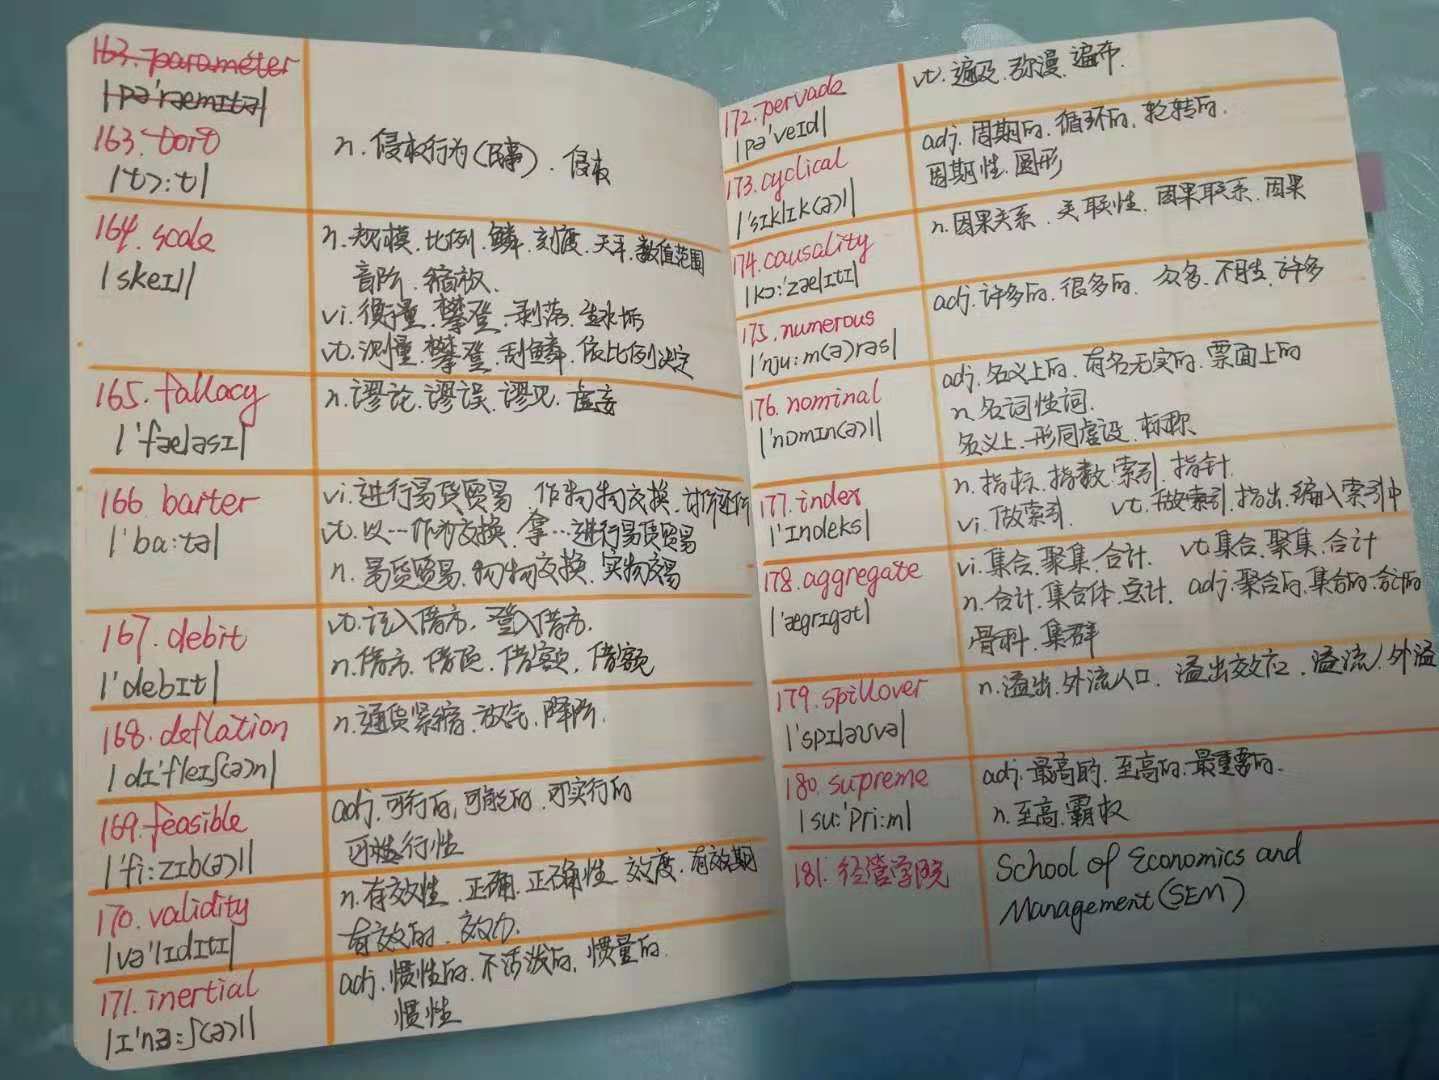 163. parameter
|pəˈræmɪtə|
163. tort
|tɔ:t|
n. 侵权行为(民事). 侵权
164. scale
|skeɪl|
n. 规模. 比例. 鳞. 刻度. 天平. 数值范围
音阶. 缩放.
vi. 衡量. 攀登. 剥落. 生水垢
vt. 测量. 攀登. 刮鳞. 依比例决定
165. fallacy
|ˈfæləsɪ|
n. 谬论. 谬误. 谬见. 虚妄
166. barter
|ˈbɑ:tə|
vi. 进行易货贸易. 作物物交换. 讨价还价
vt. 以…作为交换. 拿…进行易货贸易
n. 易货贸易. 物物交换. 实物交易
167. debit
|ˈdebɪt|
vt. 记入借方. 登入借方.
n. 借方. 借项. 借款. 借额
168. deflation
|dɪˈfleɪʃ(ə)n|
n. 通货紧缩. 放气. 降阶.
169. feasible
|ˈfi:zɪb(ə)l|
adj. 可行的, 可能的. 可实行的
可行性
170. validity
|vəˈlɪdɪtɪ|
n. 有效性. 正确. 正确性. 效度. 有效期
有效的. 效力.
171. inertial
|ɪˈnɜ:ʃ(ə)l|
adj. 惯性的. 不活泼的. 惯量的.
惯性
172. pervade
|pəˈveɪd|
vt. 遍及. 弥漫. 遍布.
173. cyclical
|ˈsɪklɪk(ə)l|
adj. 周期的. 循环的. 轮转的.
周期性. 圆形
174. causality
|kɔ:ˈzælɪtɪ|
n. 因果关系. 关联性. 因果联系. 因果
175. numerous
|ˈnju:m(ə)rəs|
adj. 许多的. 很多的. 众多. 不胜. 许多
176. nominal
|ˈnɒmɪn(ə)l|
adj. 名义上的. 有名无实的. 票面上的
n. 名词性词.
名义上. 形同虚设. 标称
177. index
|ˈɪndeks|
n. 指标. 指数. 索引. 指针.
vi. 做索引. vt. 做索引. 指出. 编入索引中
178. aggregate
|ˈægrɪgət|
vi. 集合. 聚集. 合计. vt. 集合. 聚集. 合计
n. 合计. 集合体. 总计. adj. 聚合的. 集合的. 合计的
骨料. 集群
179. spillover
|ˈspɪləʊvə|
n. 溢出. 外流人口. 溢出效应. 溢流. 外溢
180. supreme
|su:ˈpri:m|
adj. 最高的. 至高的. 最重要的.
n. 至高. 霸权
181. 经管学院
School of Economics and
Management (SEM)